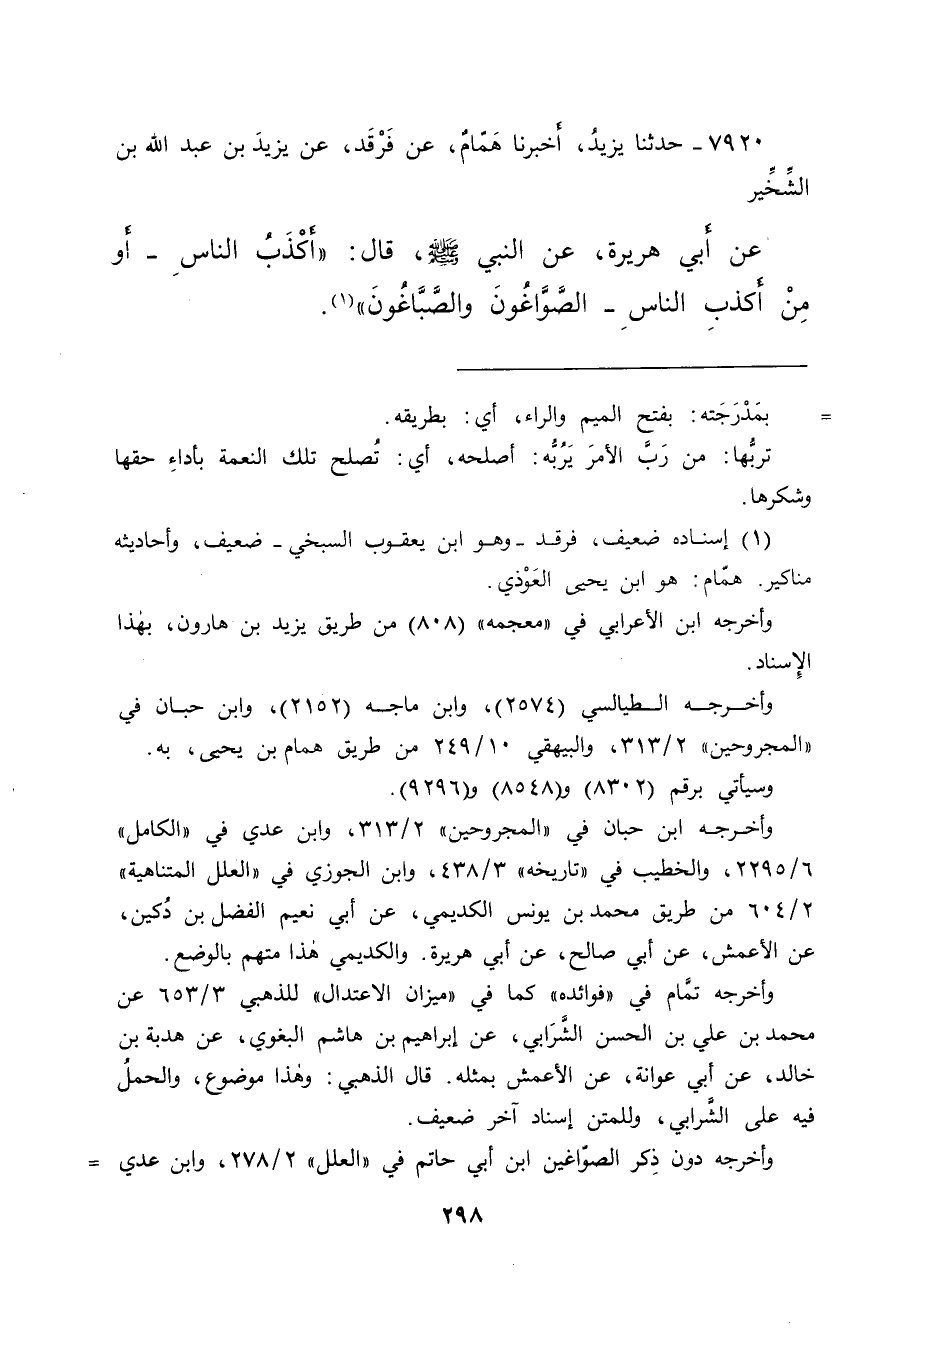 ٧٩٢٠ـ حدثنا يزيدُ، أَخبرنا هَمّامٌ، عن فَرْقَد، عن يزيدَ بن عبد الله بن
الشِّخِّير
عن أَبي هريرة، عن النبي ﷺ، قال: «أَكْذَبُ الناسِ ـ أَو
مِنْ أَكذبِ الناسِ ـ الصَّوَّاغُونَ والصَّبَّاغُونَ»(١).
= بمَدْرَجَته: بفتح الميم والراء، أي: بطريقه.
تربُّها: من رَبَّ الأمرَ يَرُبُّه: أصلحه، أي: تُصلح تلك النعمة بأداءِ حقها
وشكرها.
(١) إسناده ضعيف، فرقد ـ وهو ابن يعقوب السبخي ـ ضعيف، وأحاديثه
مناكير. همّام: هو ابن يحيى العَوْذي.
وأخرجه ابن الأعرابي في «معجمه» (٨٠٨) من طريق يزيد بن هارون، بهٰذا
الإسناد.
وأخرجه الطيالسي (٢٥٧٤)، وابن ماجه (٢١٥٢)، وابن حبان في
«المجروحين» ٣١٣/٢، والبيهقي ٢٤٩/١٠ من طريق همام بن يحيى، به.
وسيأتي برقم (٨٣٠٢) و(٨٥٤٨) و(٩٢٩٦).
وأخرجه ابن حبان في «المجروحين» ٣١٣/٢، وابن عدي في «الكامل»
٢٢٩٥/٦، والخطيب في «تاريخه» ٤٣٨/٣، وابن الجوزي في «العلل المتناهية»
٦٠٤/٢ من طريق محمد بن يونس الكديمي، عن أبي نعيم الفضل بن دُكين،
عن الأعمش، عن أبي صالح، عن أبي هريرة. والكديمي هٰذا متهم بالوضع.
وأخرجه تمَّام في «فوائده» كما في «ميزان الاعتدال» للذهبي ٦٥٣/٣ عن
محمد بن علي بن الحسن الشَّرَابي، عن إبراهيم بن هاشم البغوي، عن هدبة بن
خالد، عن أبي عوانة، عن الأعمش بمثله. قال الذهبي: وهٰذا موضوع، والحملُ
فيه على الشَّرابي، وللمتن إسناد آخر ضعيف.
وأخرجه دون ذِكر الصوّاغين ابن أبي حاتم في «العلل» ٢٧٨/٢، وابن عدي =
٢٩٨